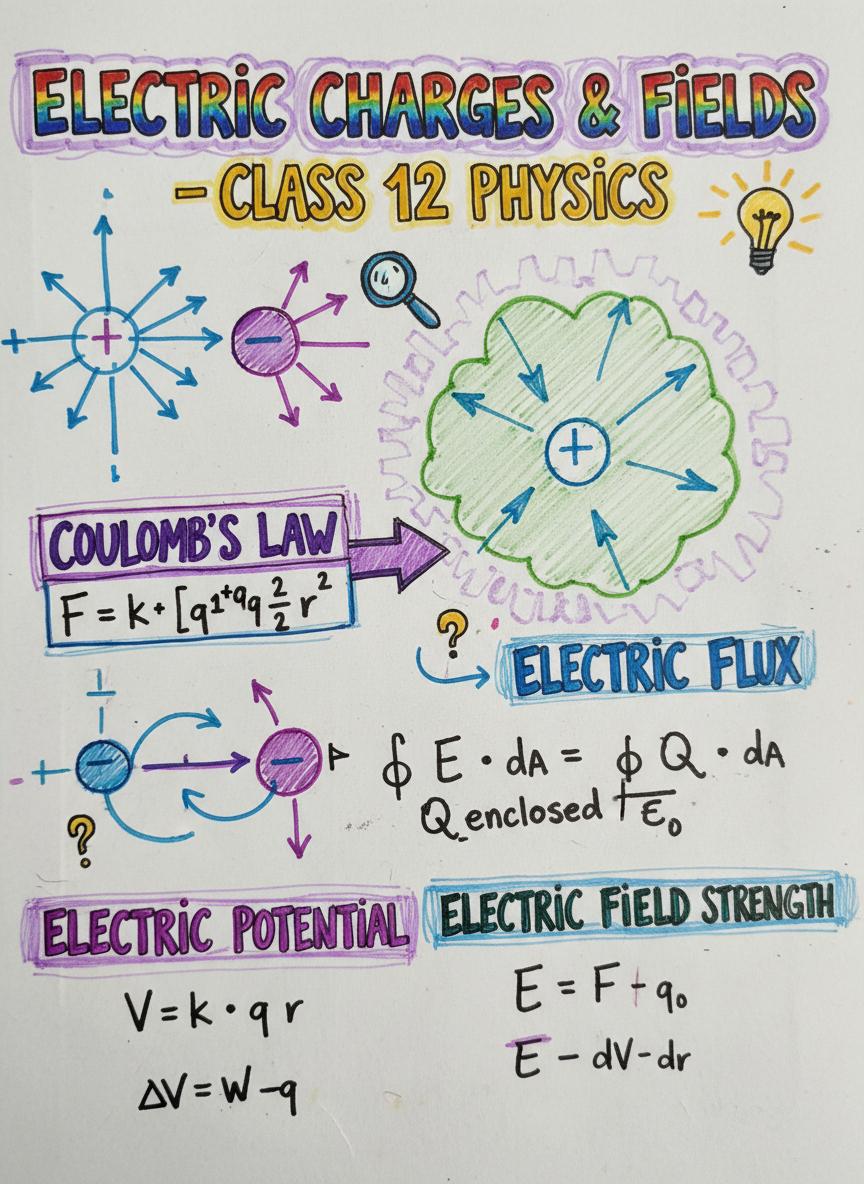 ELECTRIC CHARGES & FIELDS
- CLASS 12 PHYSICS
+
-
+
COULOMB'S LAW
F = k + [q1+qq 2/2 r²
?
ELECTRIC FLUX
+
-
-
?
∮ E · dA = ∮ Q · dA
Q_enclosed ε₀
ELECTRIC POTENTIAL
V = k · q r
ΔV = W - q
ELECTRIC FIELD STRENGTH
E = F - q₀
E - dV - dr